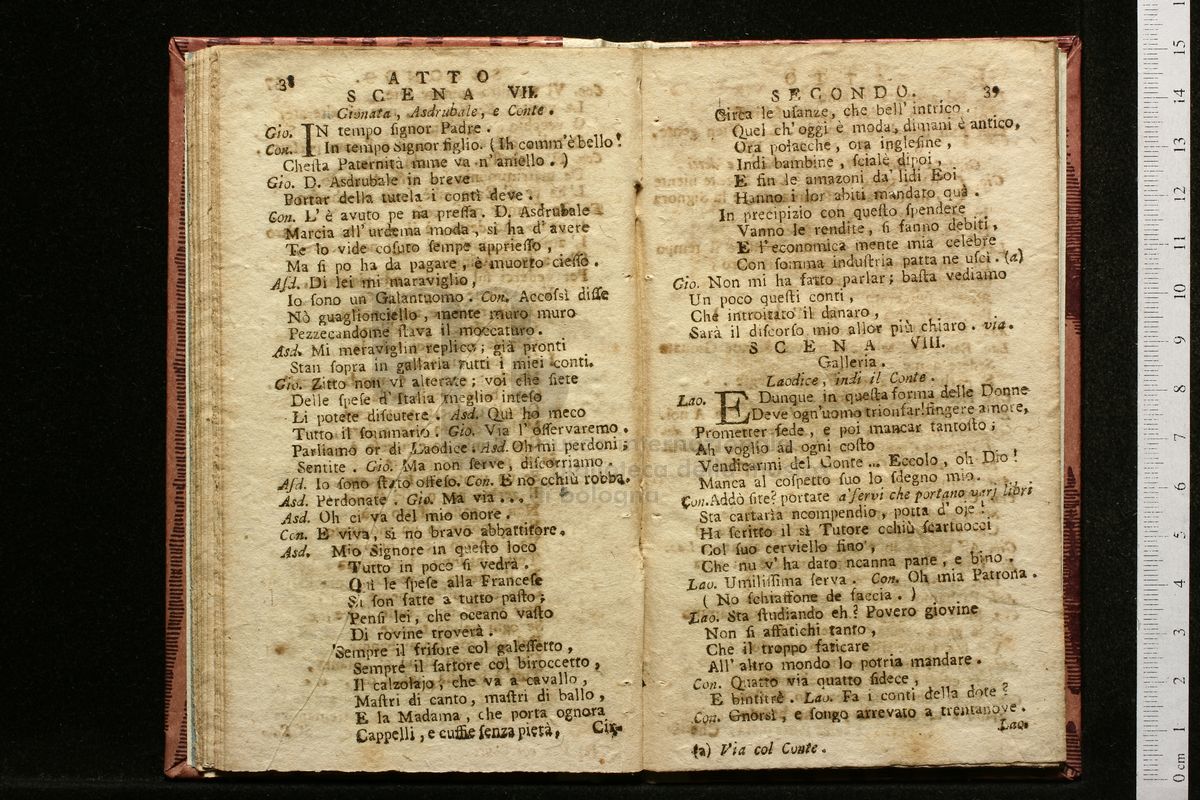 38
ATTO
SCENA VII.
Gionata, Asdrubale, e Conte.
Gio. IN tempo ſignor Padre.
Con. In tempo Signor figlio. (Ih comm'è bello!
Cheſta Paternità mme va n'aniello.)
Gio. D. Asdrubale in breve
Portar della tutela i conti deve.
Con. L'è avuto pe na preſſa. D. Asdrubale
Marcia all'urdema moda, si ha d'avere
Te lo vide coſuto ſempe apprieſſo,
Ma ſi po ha da pagare, è muorto cieſſo.
Aſd. Di lei mi maraviglio,
Io ſono un Galantuomo. Con. Accoſsì diſſe
Nò guaglionciello, mente muro muro
Pezzecandome ſtava il moccaturo.
Asd. Mi meraviglin replico; già pronti
Stan ſopra in gallaria tutti i miei conti.
Gio. Zitto non vi alterate; voi che ſiete
Delle ſpeſe d'Italia meglio inteſo
Li potete diſcutere. Asd. Quì ho meco
Tutto il ſommario. Gio. Via l'oſſervaremo.
Parliamo or di Laodice. Asd. Oh mi perdoni;
Sentite. Gio. Ma non ſerve, diſcorriamo.
Aſd. Io ſono ſtato offeſo. Con. E no cchiù robba.
Asd. Perdonate. Gio. Ma via...
Asd. Oh ci va del mio onore.
Con. E viva, si no bravo abbattitore.
Asd. Mio Signore in queſto loco
Tutto in poco ſi vedrà.
Quì le ſpeſe alla Franceſe
Si ſon fatte a tutto paſto;
Penſi lei, che oceano vaſto
Di rovine troverà.
Sempre il friſore col galeſſetto,
Sempre il ſartore col biroccetto,
Il calzolajo, che va a cavallo,
Maſtri di canto, maſtri di ballo,
E la Madama, che porta ognora
Cappelli, e cuffie ſenza pietà,
Cir-
SECONDO. 39
Circa le uſanze, che bell'intrico.
Quel ch'oggi è moda, dimani è antico,
Ora polacche, ora ingleſine,
Indi bambine, ſciale dipoi,
E fin le amazoni da' lidi Eoi
Hanno i lor abiti mandato quà.
In precipizio con queſto ſpendere
Vanno le rendite, ſi fanno debiti,
E l'economica mente mia celebre
Con ſomma induſtria patta ne uſcì. (a)
Gio. Non mi ha fatto parlar; baſta vediamo
Un poco queſti conti,
Che introitato il danaro,
Sarà il diſcorſo mio allor più chiaro. via.
SCENA VIII.
Galleria.
Laodice, indi il Conte.
Lao. E Dunque in queſta forma delle Donne
Deve ogn'uomo trionfar! fingere amore,
Prometter fede, e poi mancar tantoſto;
Ah voglio ad ogni coſto
Vendicarmi del Conte... Eccolo, oh Dio!
Manca al coſpetto ſuo lo ſdegno mio.
Con. Addò ſite? portate a' ſervi che portano varj libri
Sta cartarìa ncompendio, potta d'oje!
Ha ſcritto il sì Tutore cchiù ſcartuocci
Col ſuo cerviello fino,
Che nu v'ha dato ncanna pane, e bino.
Lao. Umiliſſima ſerva. Con. Oh mia Patrona.
(No ſchiaffone de faccia.)
Lao. Sta ſtudiando eh? Povero giovine
Non ſi affatichi tanto,
Che il troppo faticare
All'altro mondo lo potria mandare.
Con. Quatto via quatto ſidece,
E bintitrè. Lao. Fa i conti della dote?
Con. Gnorsì, e ſongo arrevato a trentanove.
Lao.
(a) Via col Conte.